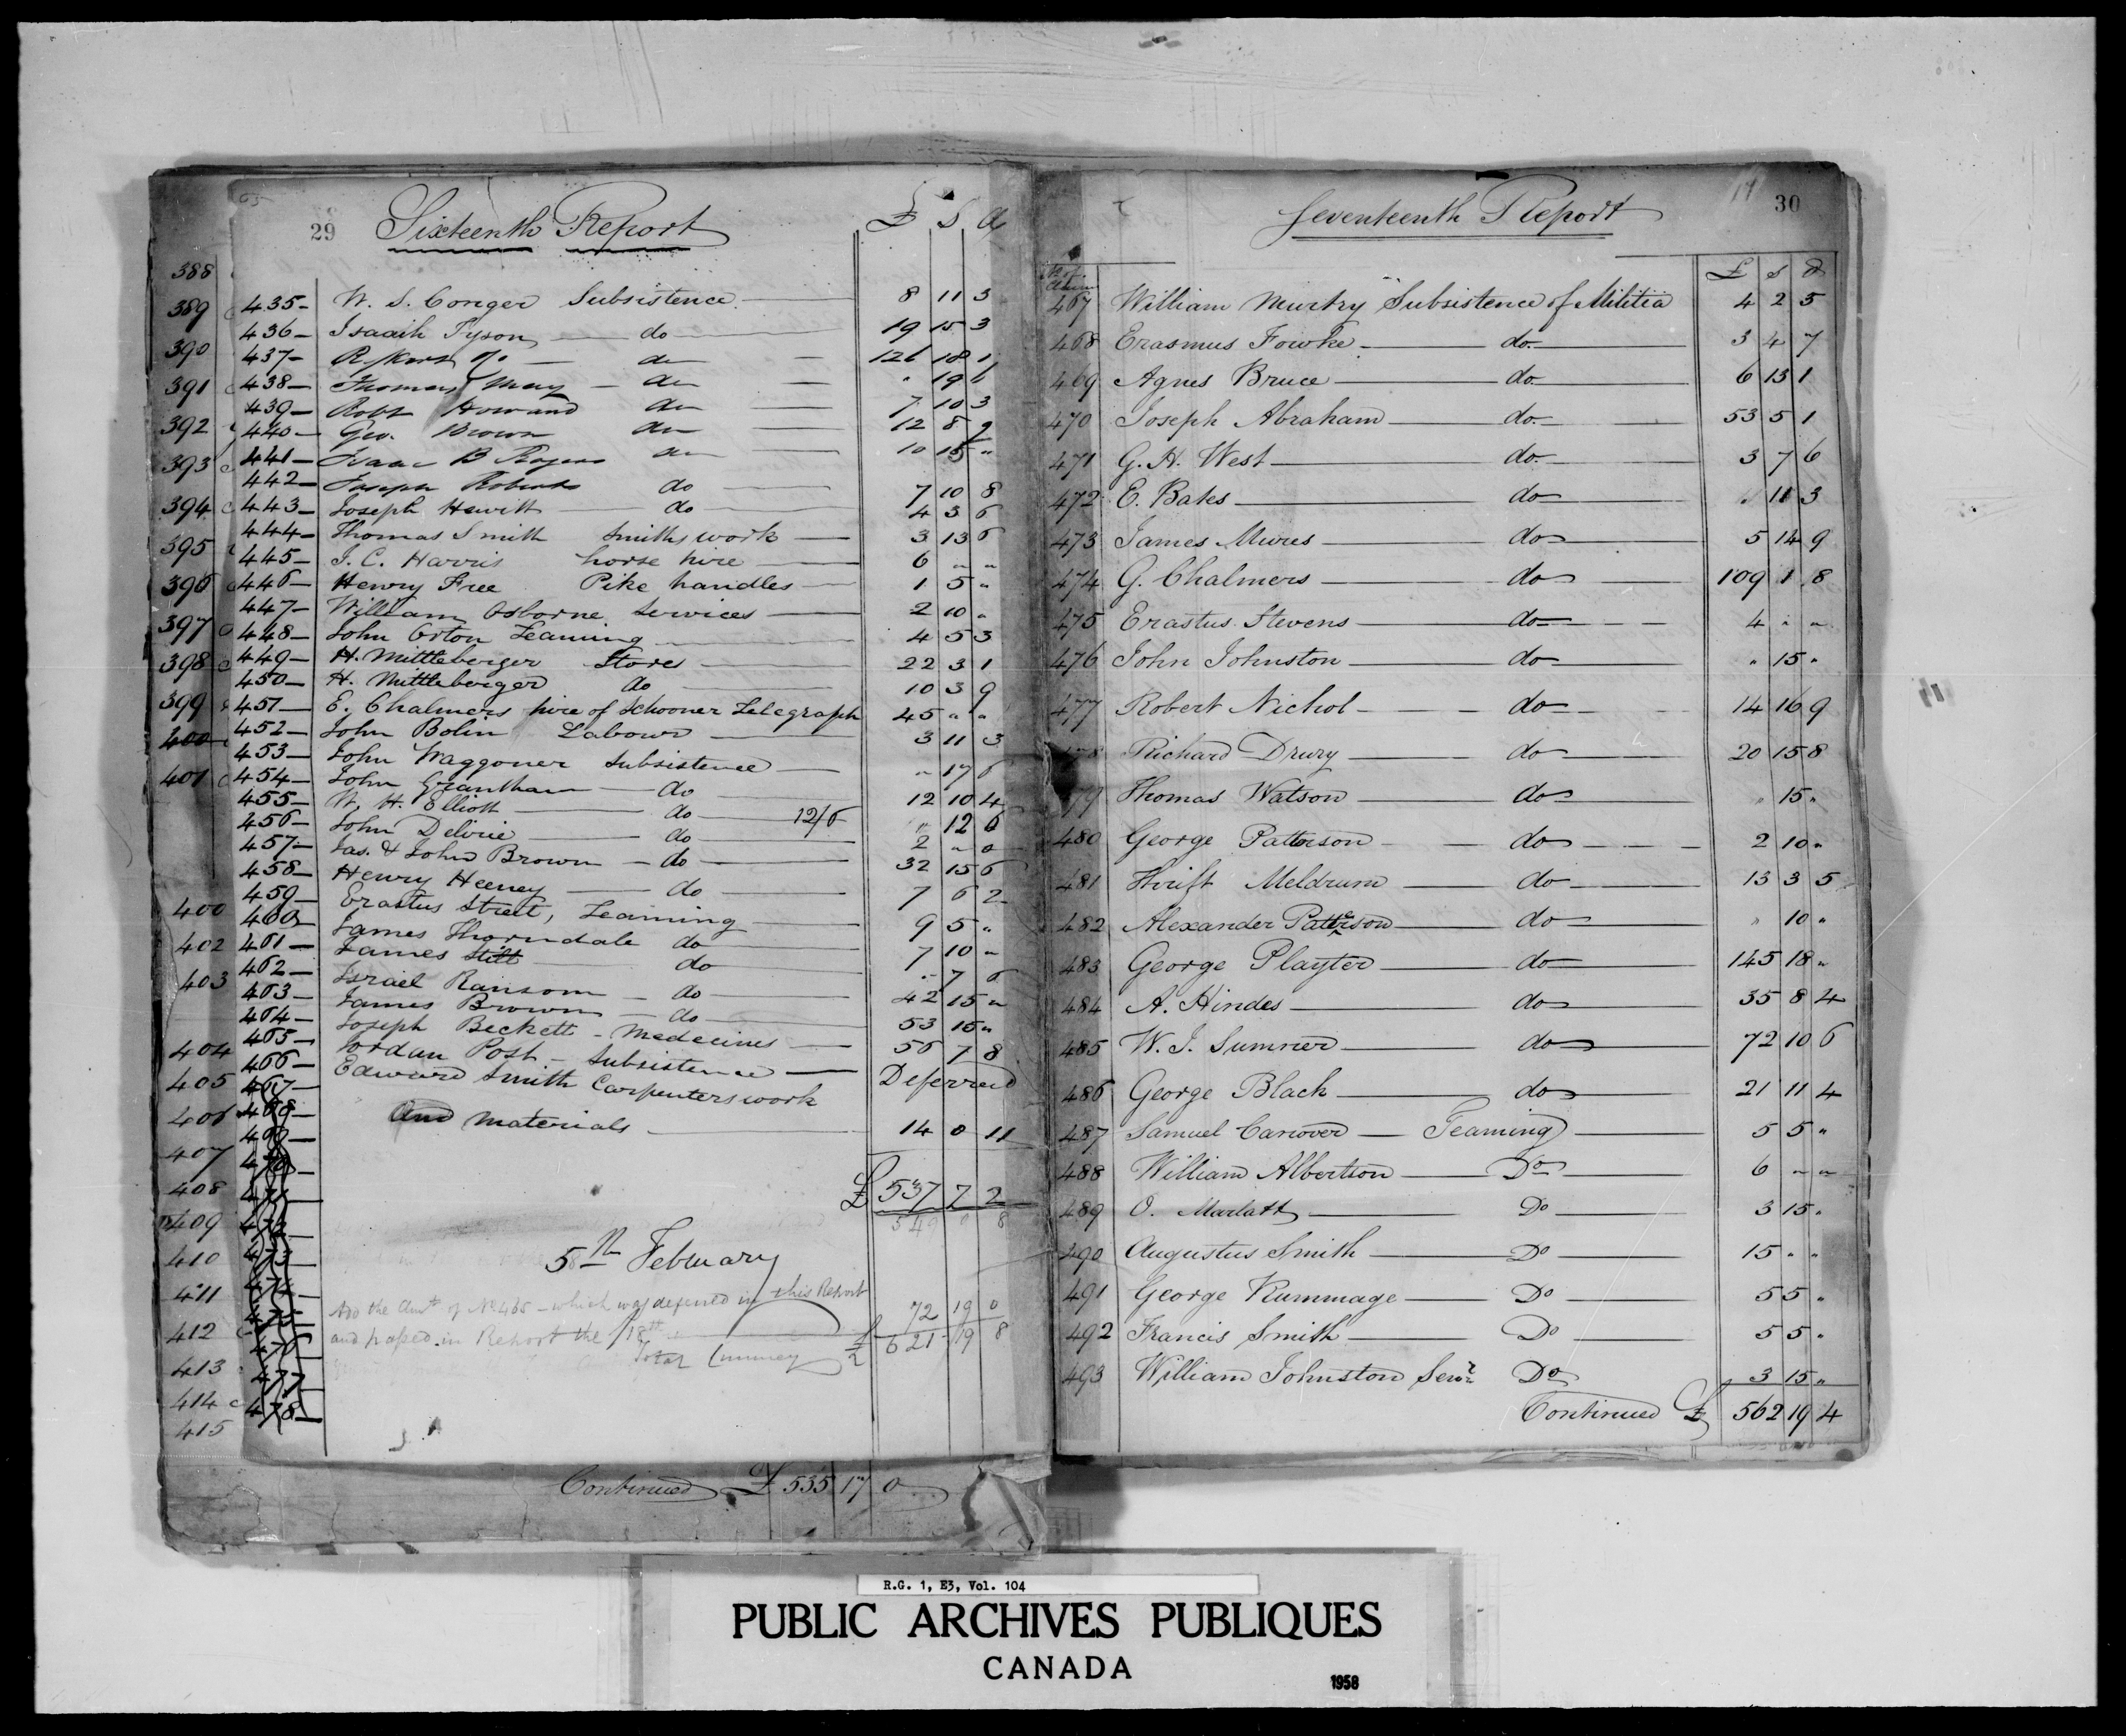 29 Sixteenth Report £ S d
388
389
390
391
392
393
394
395
396
397
398
399
400
401
400
402
403
404
405
406
407
408
409
410
411
412
413
414
415
435- W. S. Conger Subsistence 8 11 3
436- Isaaih Tyson do 19 15 3
437- do 126 18 1
438- Thomas May do " 19 6
439- Robt Howard do 7 10 3
440- Geo. Brown do 12 8 9
441- Isaac B Rogers do 10 15 "
442- Joseph Roberts do 7 10 8
443- Joseph Hewitt do 4 3 6
444- Thomas Smith Smiths work 3 13 6
445- J. C. Harris horse hire 6 " "
446- Henry Free Pike handles 1 5 "
447- William Osborne Services 2 10 "
448- John Orton Teaming 4 5 3
449- H. Mittleberger Stores 22 3 1
450- H. Mittleberger do 10 3 9
451- E. Chalmers hire of Schooner Telegraph 45 " "
452- John Bolin Labour 3 11 3
453- John Waggoner Subsistence " 17 6
454- John Grantham do 12 10 4
455- W. H. Elliott do 12/6 " 12 6
456- John Delvie do 2 " 0
457- Jas. & John Brown do 32 15 6
458- Henry Heeney do 7 6 2
459- Erastus Street, Teaming 9 5 "
460- James Thorndale do 7 10 "
461- James Stitt do " 7 6
462- Israel Ransom do 42 15 "
463- James Brown do 53 15 "
464- Joseph Beckett - Medecines 56 7 8
465- Jordan Post - Subsistence Deferred
466- Edward Smith Carpenters work
And Materials 14 0 11
467-
468-
469-
470-
471-
472-
473-
474-
475-
476-
477-
478-
£ 537 7 2
549 0 8
5th February
Add the Amt of No 465 - which was deferred in this Report 72 19 0
and passed in Report the 18th £ 621 19 8
Total
Continued £ 535 17 0
Seventeenth Report 17 30
No of Claim £ s d
467 William Murtry Subsistence of Militia 4 2 5
468 Erasmus Fowke do 3 4 7
469 Agnes Bruce do 6 13 1
470 Joseph Abraham do 53 5 1
471 G. H. West do 3 7 6
472 E. Bates do " 11 3
473 James Mures do 5 14 9
474 G. Chalmers do 109 1 8
475 Erastus Stevens do 4 " "
476 John Johnston do " 15 "
477 Robert Nichol do 14 16 9
478 Richard Drury do 20 15 8
479 Thomas Watson do " 15 "
480 George Patterson do 2 10 "
481 Thrift Meldrum do 13 3 5
482 Alexander Patterson do " 10 "
483 George Playter do 145 18 "
484 A. Hindes do 35 8 4
485 W. J. Sumner do 72 10 6
486 George Black do 21 11 4
487 Samuel Canover Teaming 5 5 "
488 William Albertson Do 6 " "
489 O. Marlatt Do 3 15 "
490 Augustus Smith Do 15 " "
491 George Rummage Do 5 5 "
492 Francis Smith Do 5 5 "
493 William Johnston Senr Do 3 15 "
Continued £ 562 19 4
R.G. 1, E3, Vol. 104
PUBLIC ARCHIVES PUBLIQUES
CANADA
1958